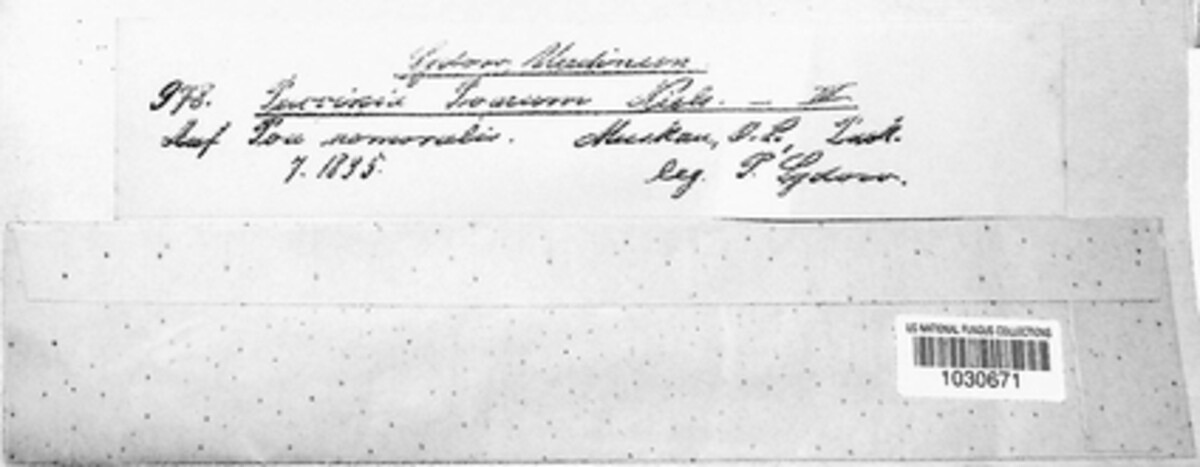 Sydow, Uredineen.
978. Puccinia Poarum Niels. — III
Auf Poa nemoralis. Muskau, O. L.,
7. 1895. leg. P. Sydow.
US NATIONAL FUNGUS COLLECTIONS
1030671